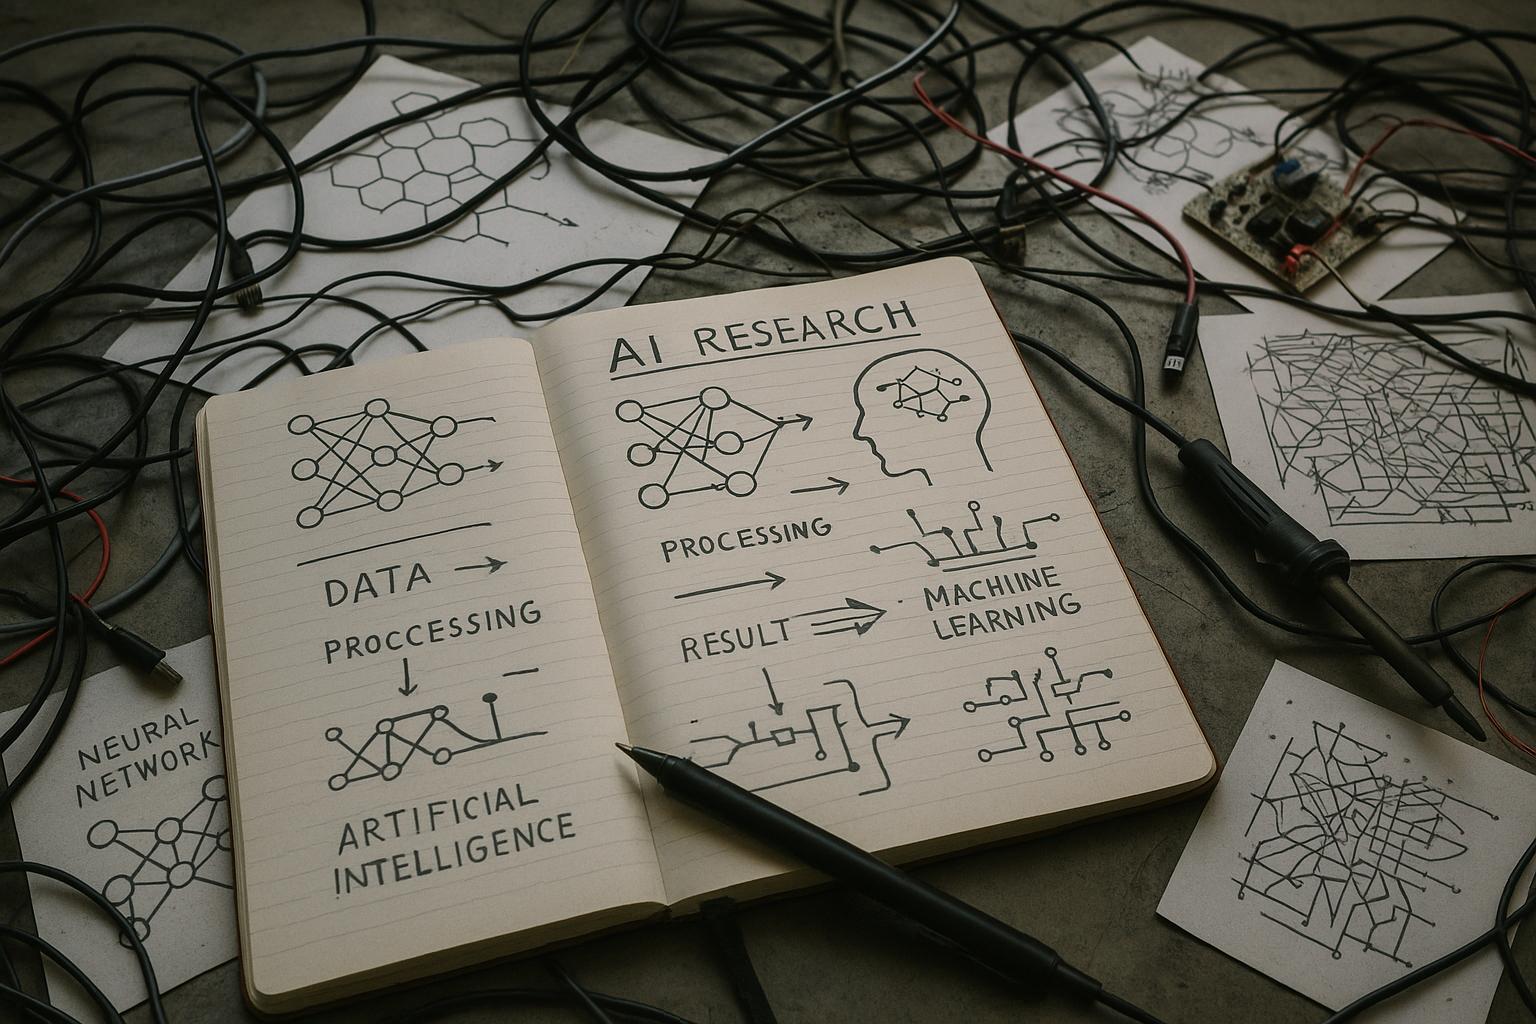 AI RESEARCH
DATA
PROCCESSING
ARTIFICIAL
INTELLIGENCE
PROCESSING
RESULT
MACHIINE
LEARNING
NEURAL
NETWORK